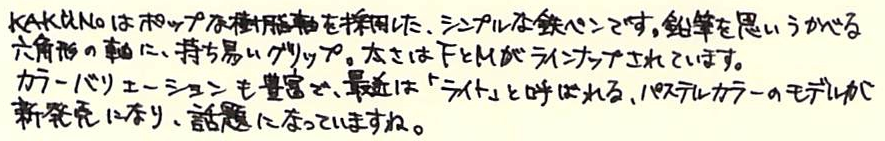 KAKUNOはポップな樹脂軸を採用した、シンプルな鉄ペンです。鉛筆を思いうかべる
六角形の軸に、持ち易いグリップ。太さはFとMがラインナップされています。
カラーバリエーションも豊富で、最近は「ライト」と呼ばれる、パステルカラーのモデルが
新発売になり、話題になっていますね。